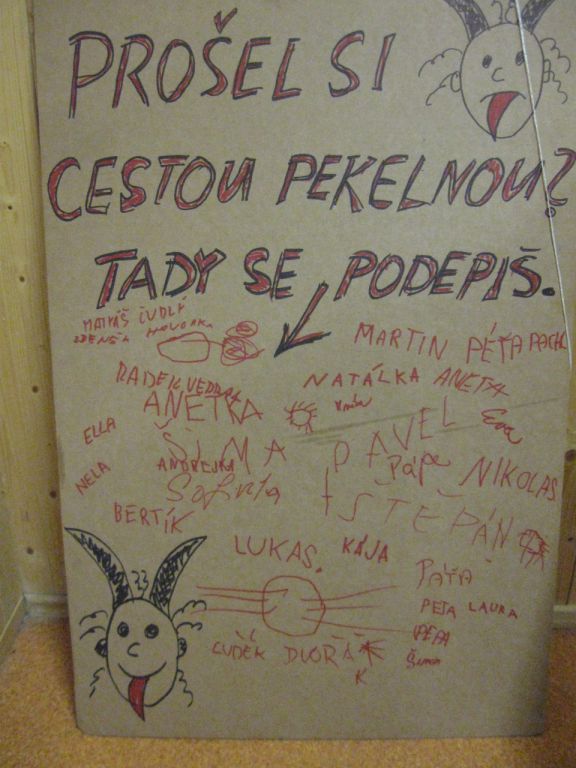 PROŠEL SI
CESTOU PEKELNOU?
TADY SE PODEPIŠ.
MATYÁŠ ČUDLÝ
ZDENIČA HOVORKA
MARTIN PÉŤA
RADEK VEDRAL
NATÁLKA ANETA
ANETKA
PAVEL Eva
ELLA
ŠIMA
Pápe
ANDREJKA
NIKOLAS
NELA
Sofinka
ŠTĚPÁN
BERTÍK
LUKAS. KÁJA
PÁŤA
PEŤA LAURA
PEPA
LUDĚK DVOŘÁK
Šimon